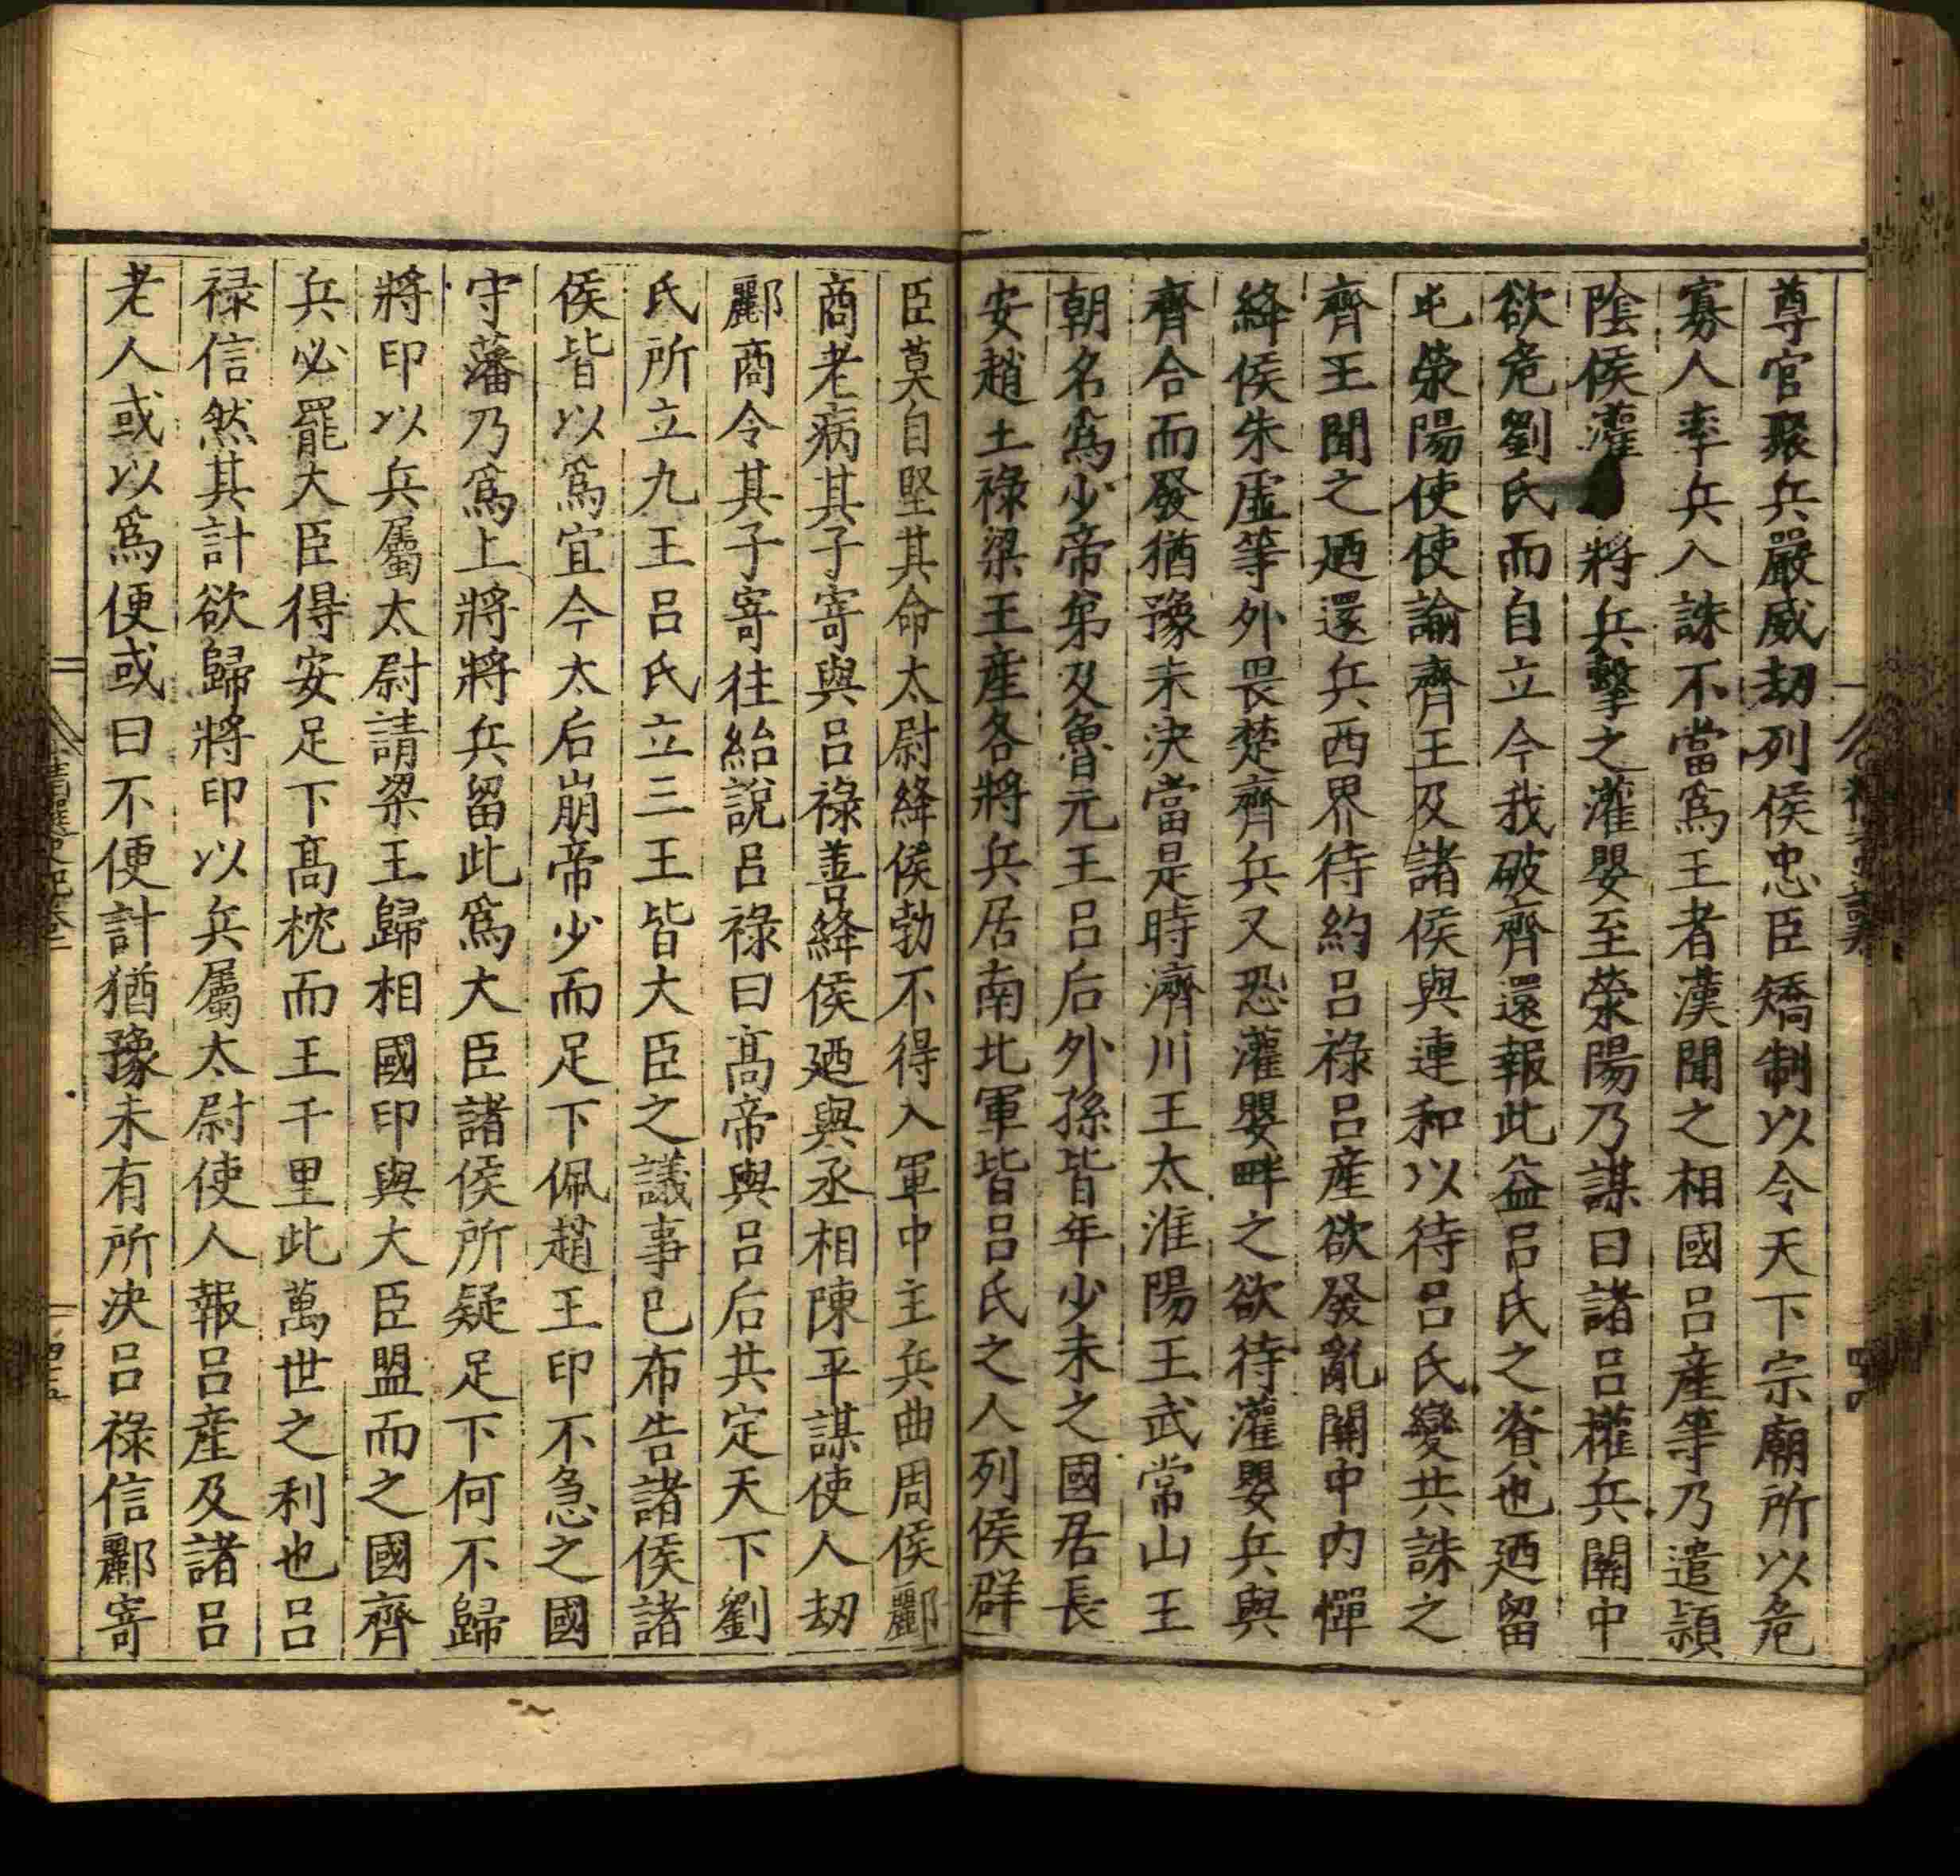 尊官聚兵嚴威劫列侯忠臣矯制以令天下宗廟所以危
寡人率兵入誅不當爲王者漢聞之相國呂產等乃遣潁
陰侯灌將兵擊之灌嬰至滎陽乃謀曰諸呂權兵關中
欲危劉氏而自立今我破齊還報此益呂氏之資也廼留
屯滎陽使使諭齊王及諸侯與連和以待呂氏變共誅之
齊王聞之廼還兵西界待約呂祿呂產欲發亂關中內憚
絳侯朱虛等外畏楚齊兵又恐灌嬰畔之欲待灌嬰兵與
齊合而發猶豫未決當是時濟川王太淮陽王武常山王
朝名爲少帝弟及魯元王呂后外孫皆年少未之國居長
安趙王祿梁王產各將兵居南北軍皆呂氏之人列侯群
臣莫自堅其命太尉絳侯勃不得入軍中主兵曲周侯酈
商老病其子寄與呂祿善絳侯廼與丞相陳平謀使人劫
酈商令其子寄往紿說呂祿曰高帝與呂后共定天下劉
氏所立九王呂氏立三王皆大臣之議事已布告諸侯諸
侯皆以爲宜今太后崩帝少而足下佩趙王印不急之國
守藩乃爲上將將兵留此爲大臣諸侯所疑足下何不歸
將印以兵屬太尉請梁王歸相國印與大臣盟而之國齊
兵必罷大臣得安足下高枕而王千里此萬世之利也呂
祿信然其計欲歸將印以兵屬太尉使人報呂產及諸呂
老人或以爲便或曰不便計猶豫未有所決呂祿信酈寄